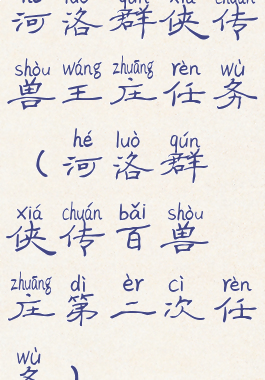 hé luò qún xiá chuán
河洛群侠传
shòu wáng zhuāng rèn wù
兽王庄任务
hé luò qún
(河洛群
xiá chuán bǎi shòu
侠传百兽
zhuāng dì èr cì rèn
庄第二次任
wù
务)